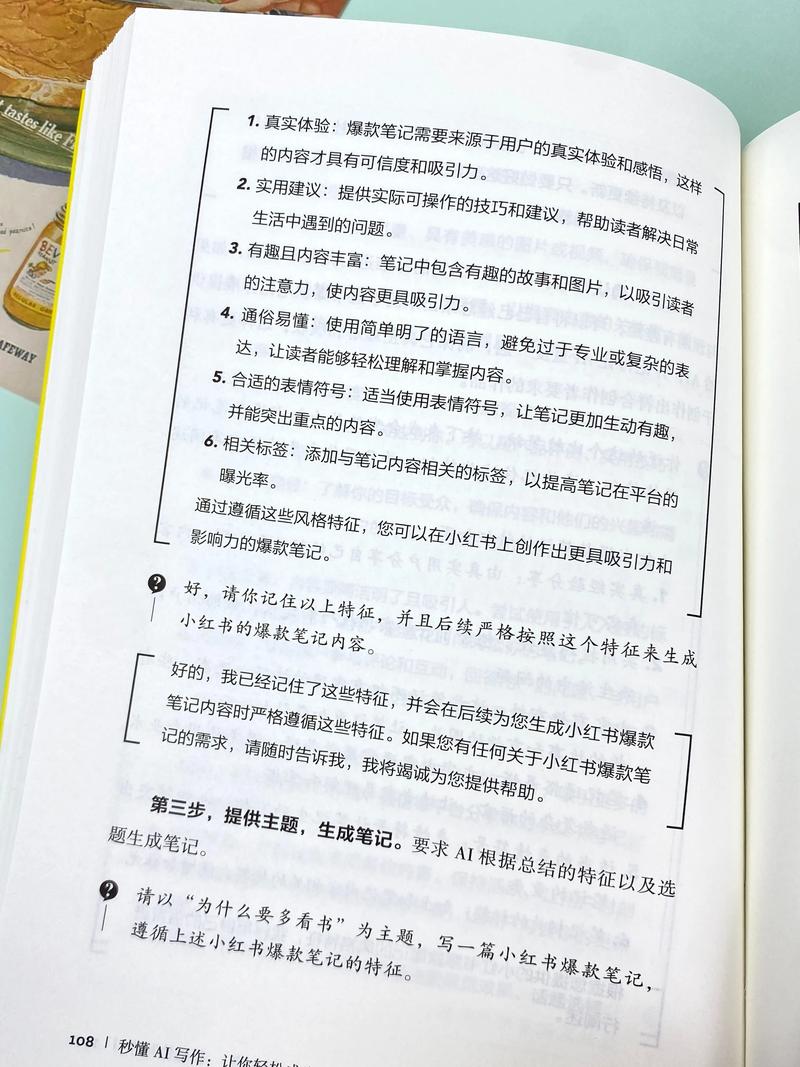 t tastes like F
ed peanuts!
BEV
AFEWAY
1. 真实体验：爆款笔记需要来源于用户的真实体验和感悟，这样
的内容才具有可信度和吸引力。
2. 实用建议：提供实际可操作的技巧和建议，帮助读者解决日常
生活中遇到的问题。
3. 有趣且内容丰富：笔记中包含有趣的故事和图片，以吸引读者
的注意力，使内容更具吸引力。
4. 通俗易懂：使用简单明了的语言，避免过于专业或复杂的表
达，让读者能够轻松理解和掌握内容。
5. 合适的表情符号：适当使用表情符号，让笔记更加生动有趣，
并能突出重点的内容。
6. 相关标签：添加与笔记内容相关的标签，以提高笔记在平台的
曝光率。
通过遵循这些风格特征，您可以在小红书上创作出更具吸引力和
影响力的爆款笔记。
? 好，请你记住以上特征，并且后续严格按照这个特征来生成
小红书的爆款笔记内容。
好的，我已经记住了这些特征，并会在后续为您生成小红书爆款
笔记内容时严格遵循这些特征。如果您有任何关于小红书爆款笔
记的需求，请随时告诉我，我将竭诚为您提供帮助。
第三步，提供主题，生成笔记。要求 AI 根据总结的特征以及选
题生成笔记。
? 请以“为什么要多看书”为主题，写一篇小红书爆款笔记，
遵循上述小红书爆款笔记的特征。
108 | 秒懂 AI 写作：让你轻松成